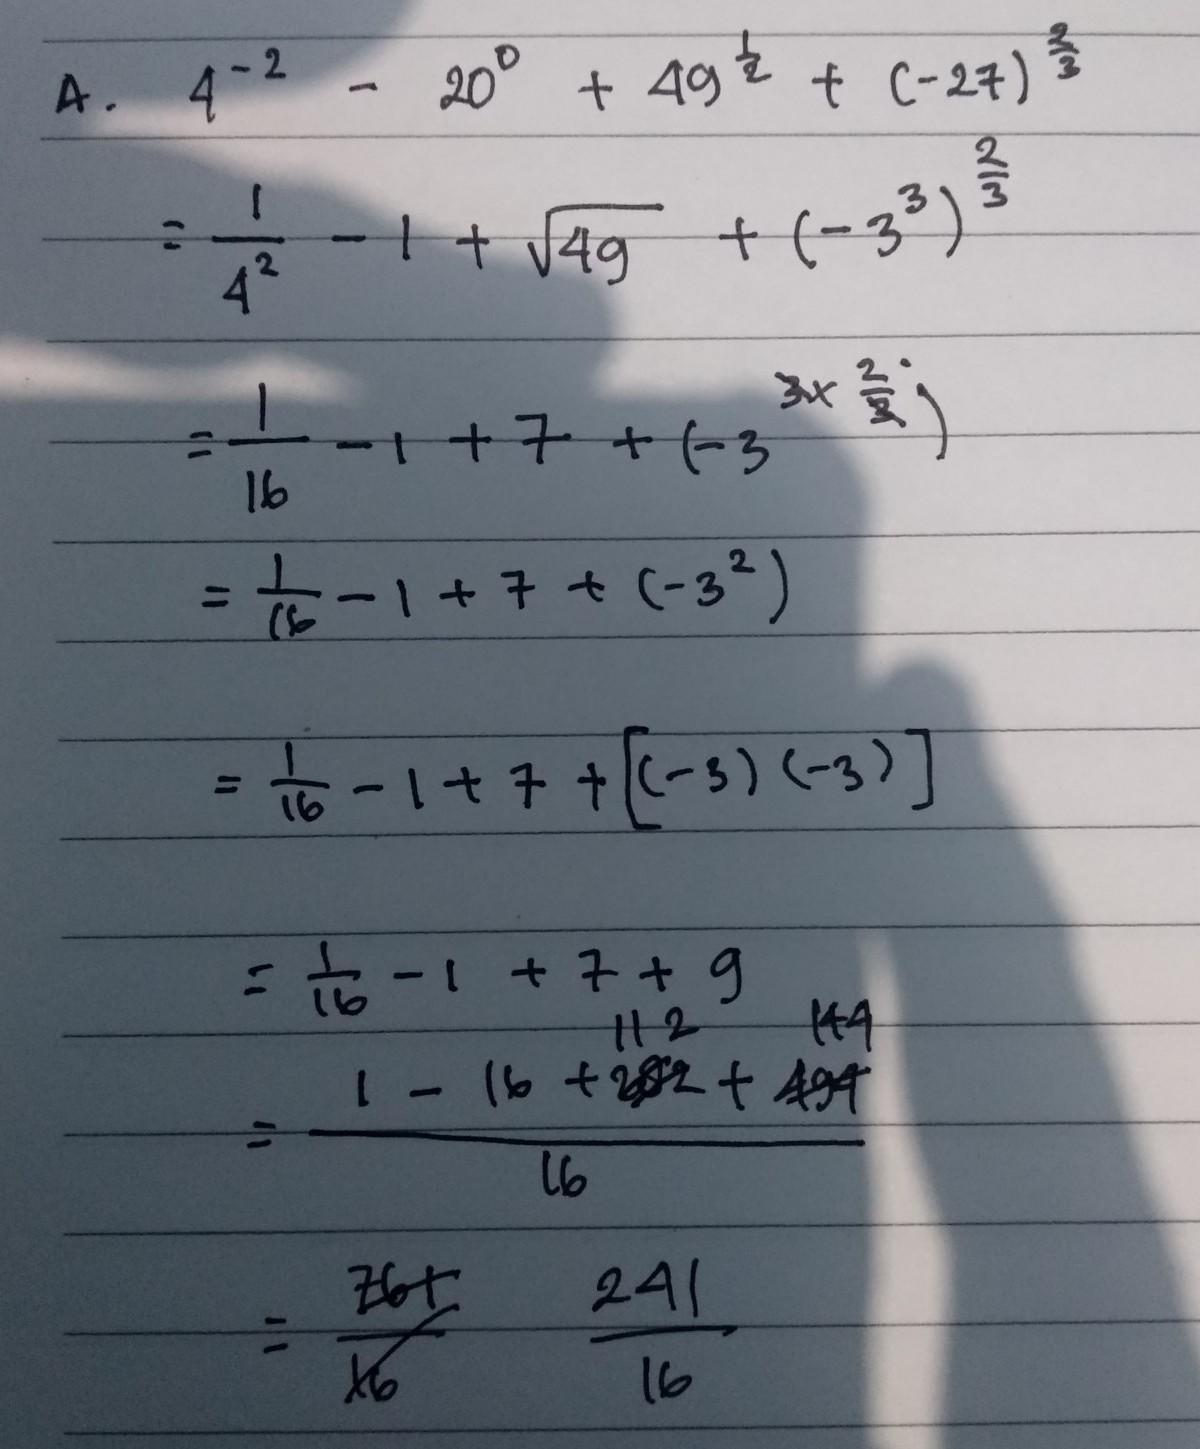 A. 4⁻² - 20⁰ + 49^½ + (-27)^⅔
= 1/4² - 1 + √49 + (-3³)^⅔
= 1/16 - 1 + 7 + (-3^3×⅔)
= 1/16 - 1 + 7 + (-3²)
= 1/16 - 1 + 7 + [(-3) (-3)]
= 1/16 - 1 + 7 + 9
112 144
= 1 - 16 + + / 16
= 241/16